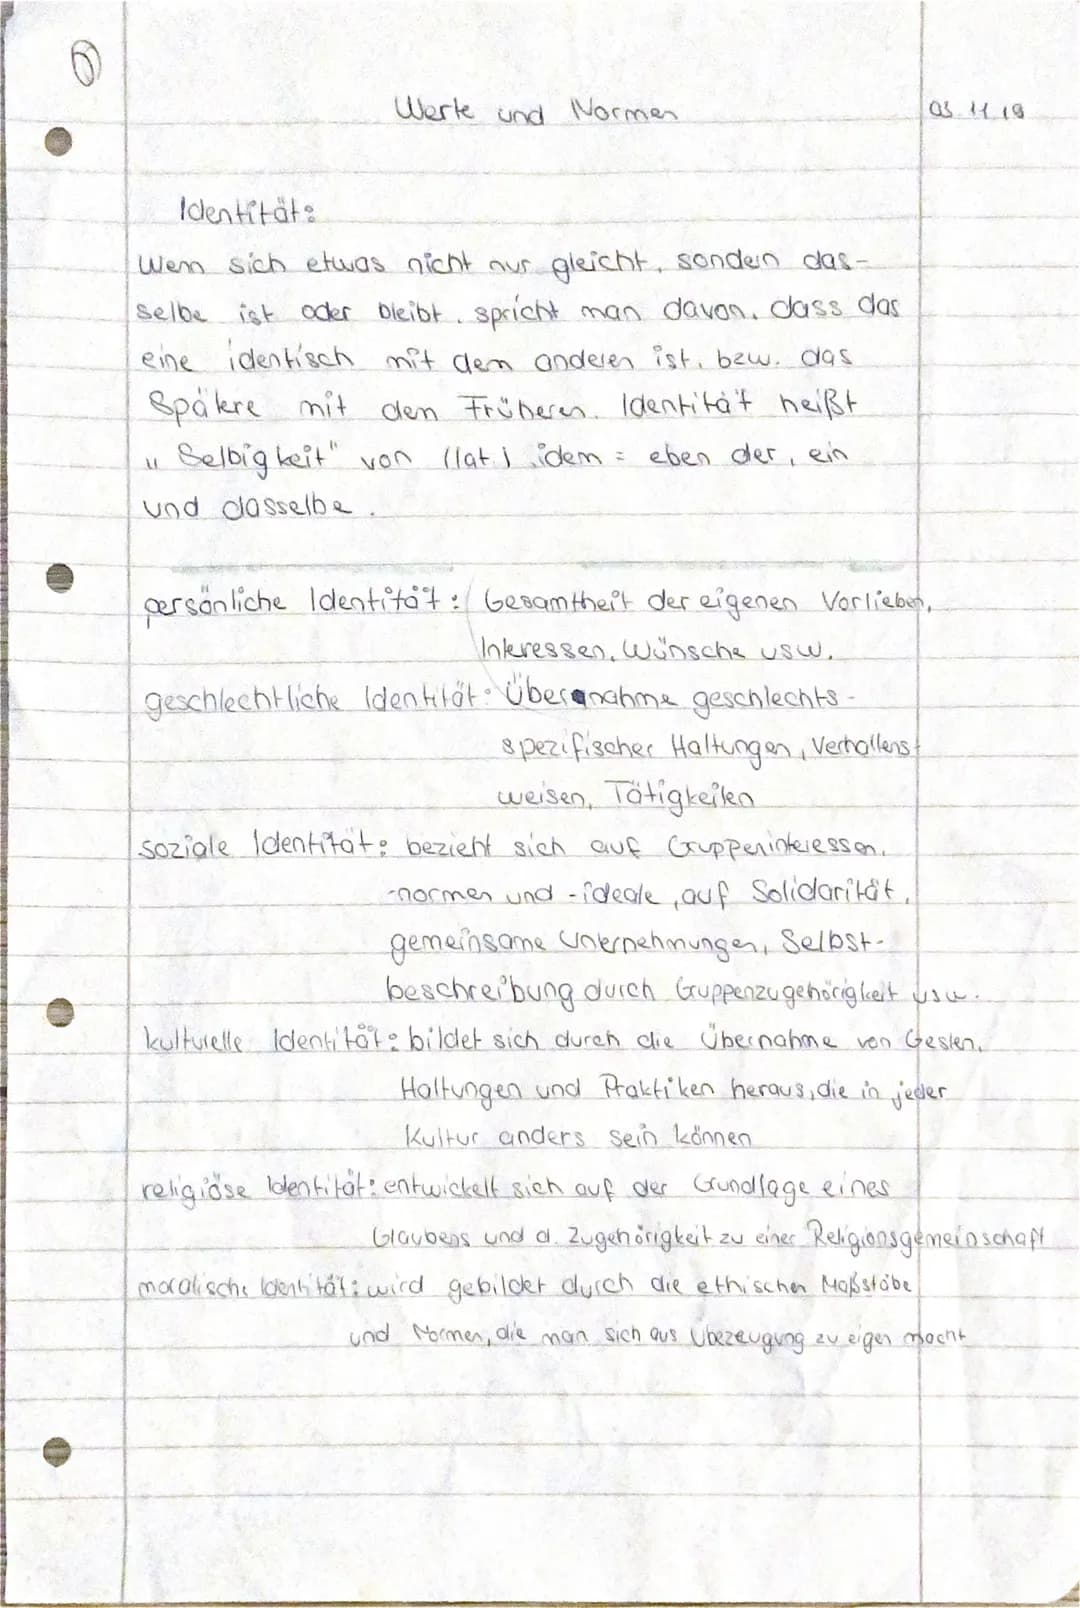 6
Werte und Normen
03.11.19
Identität:
Wenn sich etwas nicht nur gleicht, sondern das-
selbe ist oder bleibt, spricht man davon, dass das
eine identisch mit dem anderen ist, bzw. das
Spätere mit den Früheren. Identität heißt
"Selbigkeit" von (lat.) idem = eben der, ein
und dasselbe.
persönliche Identität: Gesamtheit der eigenen Vorlieben,
Interessen, Wünsche usw.
geschlechtliche Identität: Übernahme geschlechts-
spezifischer Haltungen, Verhaltens-
weisen, Tätigkeiten
soziale Identität: bezieht sich auf Gruppeninteressen,
-normen und -ideale, auf Solidarität,
gemeinsame Unernehmungen, Selbst-
beschreibung durch Gruppenzugehörigkeit usw.
kulturelle Identität: bildet sich durch die Übernahme von Gesten,
Haltungen und Praktiken heraus, die in jeder
Kultur anders sein können
religiöse Identität: entwickelt sich auf der Grundlage eines
Glaubens und d. Zugehörigkeit zu einer Religionsgemeinschaft
moralische Identität: wird gebildet durch die ethischen Maßstäbe
und Normen, die man sich aus Übezeugung zu eigen macht